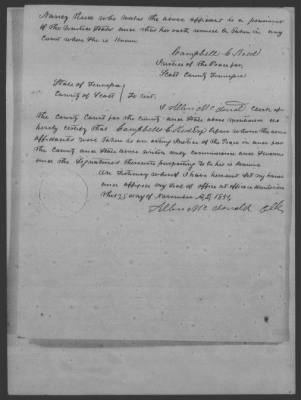 who makes the above affidavit is a pensioner
of the United States and that her oath
Court where she is known
Campbell C Reed
Justice of the Peace for
Scott County Tennessee
State of Tennessee
County of Scott } To wit.
I Allen McDonald Clerk of
the County Court for the County and State above mentioned do
hereby certify that Campbell C Reed Esq before whom the above
affidavit were taken is an acting Justice of the Peace in and for
the County and State above written duly commissioned and sworn
and the signature thereunto purporting to be his is genuine
In testimony whereof I have hereunto set my hand
and affixed my seal of office at office in
This 25 day of November AD 18
Allen McDonald Clk